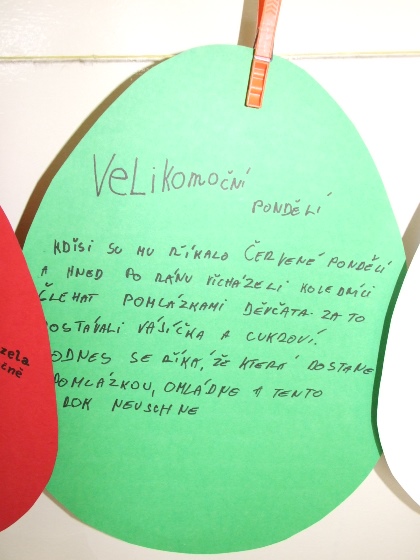 VeLikomoční
PONDĚLÍ
KDISI SU MU ŘÍKALO ČERVENÉ PONDĚLÍ
A HNED PO RÁNU VICHÁZELI KOLEDNÍCI
ŠLEHAT POMLÁZKAMI DĚVČATA. ZA TO
DOSTÁVALI VÁJÍČKA A CUKROVÍ.
ODNES SE ŘÍKÁ, ŽE KTERÁ DOSTANE
POMLÁZKOU, OMLÁDNE A TENTO
ROK NEUSCHNE
zela
cně